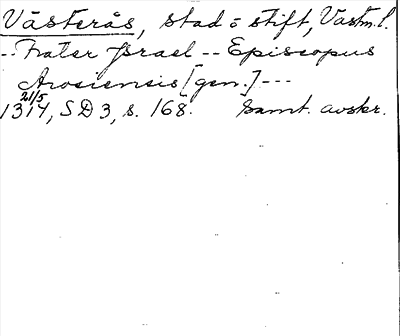 Västerås, stad o stift, Vastm.l.
-- Frater Jsrael -- Episcopus
Arosiensis [gen.] ---
21/5
1314, SD 3, s. 168. Samt. avskr.